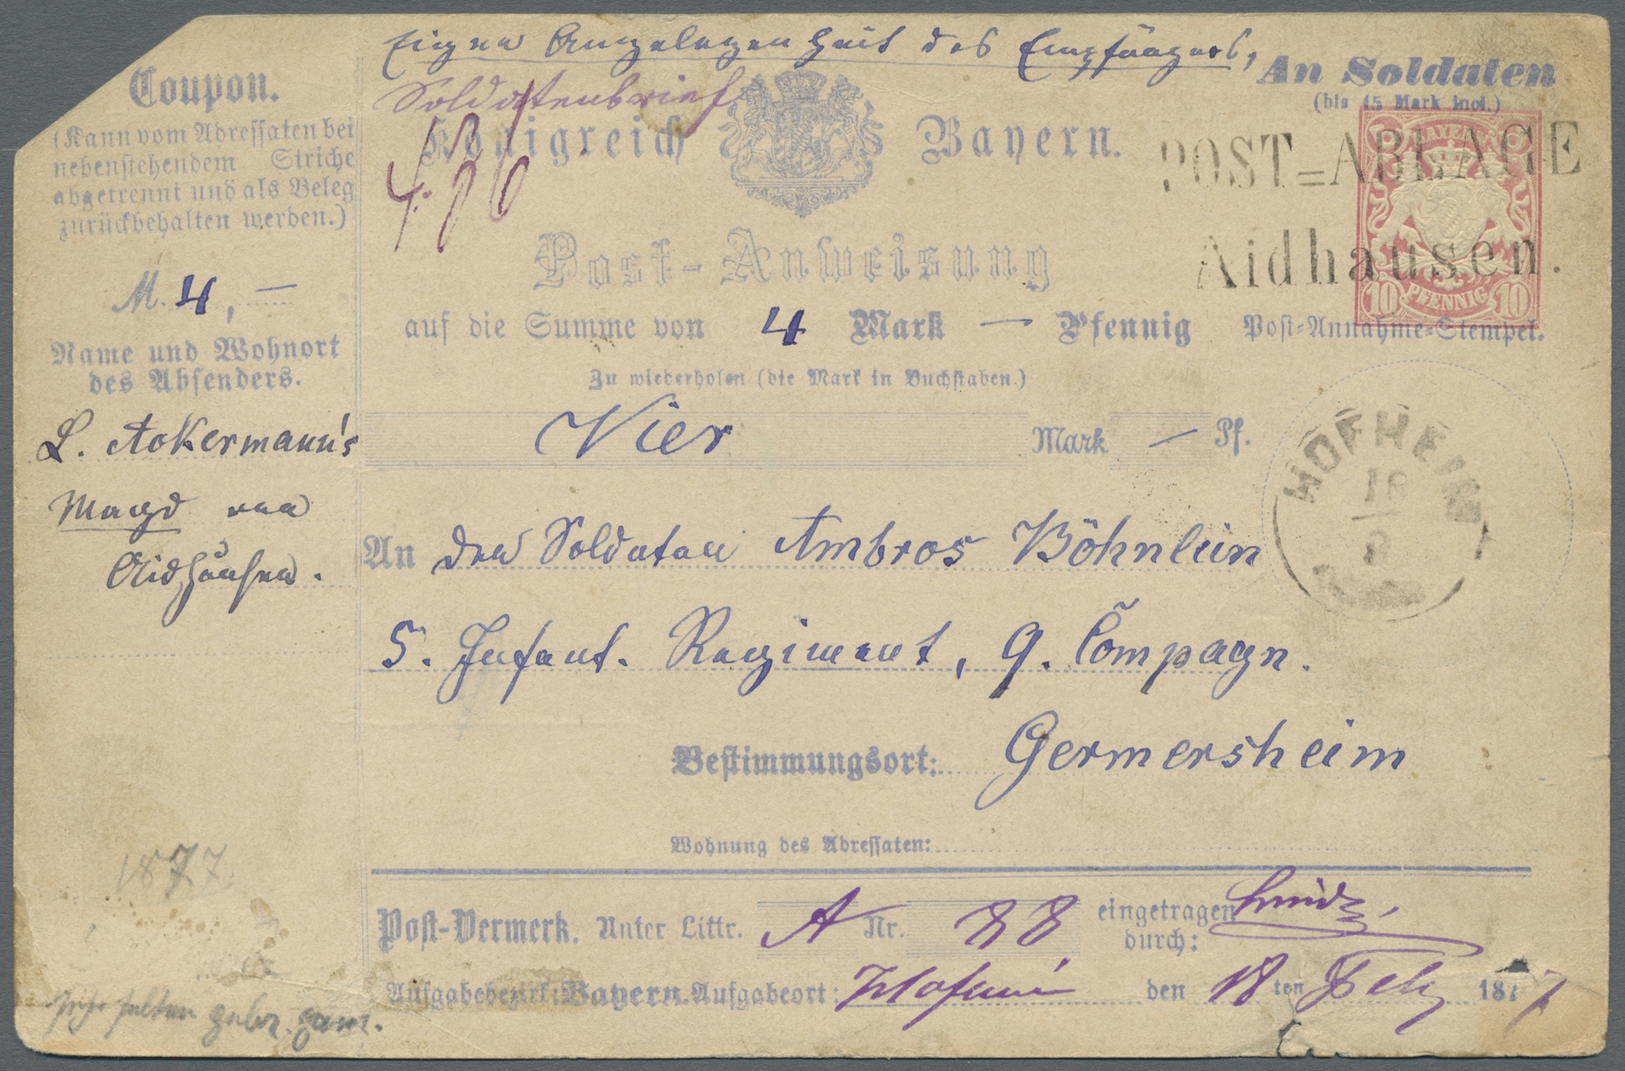 Eigene Angelegenheit des Empfängers,
Soldatenbrief
An Soldaten
(bis 15 Mark incl.)
Coupon.
(Kann vom Adressaten bei
nebenstehendem Striche
abgetrennt und als Beleg
zurückbehalten werden.)
M. 4, —
Name und Wohnort
des Absenders.
L. Ackermann's
Magd von
Aidhausen.
Königreich Bayern.
POST=ABLAGE
Aidhausen.
10 PFENNIG 10
Post-Anweisung
auf die Summe von 4 Mark — Pfennig
Post-Annahme-Stempel.
Zu wiederholen (die Mark in Buchstaben.)
Vier Mark — Pf.
HOFHEIM
18
2
An den Soldaten Ambros Böhnlein
5. Infant. Regiment, 9. Compagn.
Bestimmungsort: Germersheim
Wohnung des Adressaten:
1877
Post-Vermerk. Unter Littr. A Nr. 88 eingetragen
durch:
Aufgabebezirk: Bayern. Aufgabeort: Hofheim den 18 ten Feb. 1877